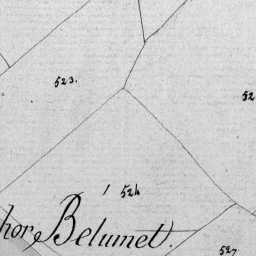 523.
52
524
hor Belumet.
527